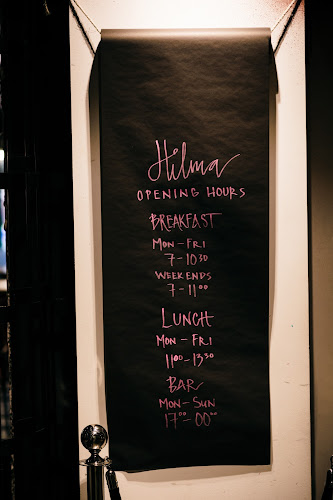 Hilma
OPENING HOURS
BREAKFAST
MON-FRI
7-10³⁰
WEEKENDS
7-11⁰⁰
LUNCH
MON-FRI
11⁰⁰-13³⁰
BAR
MON-SUN
17⁰⁰-00⁰⁰